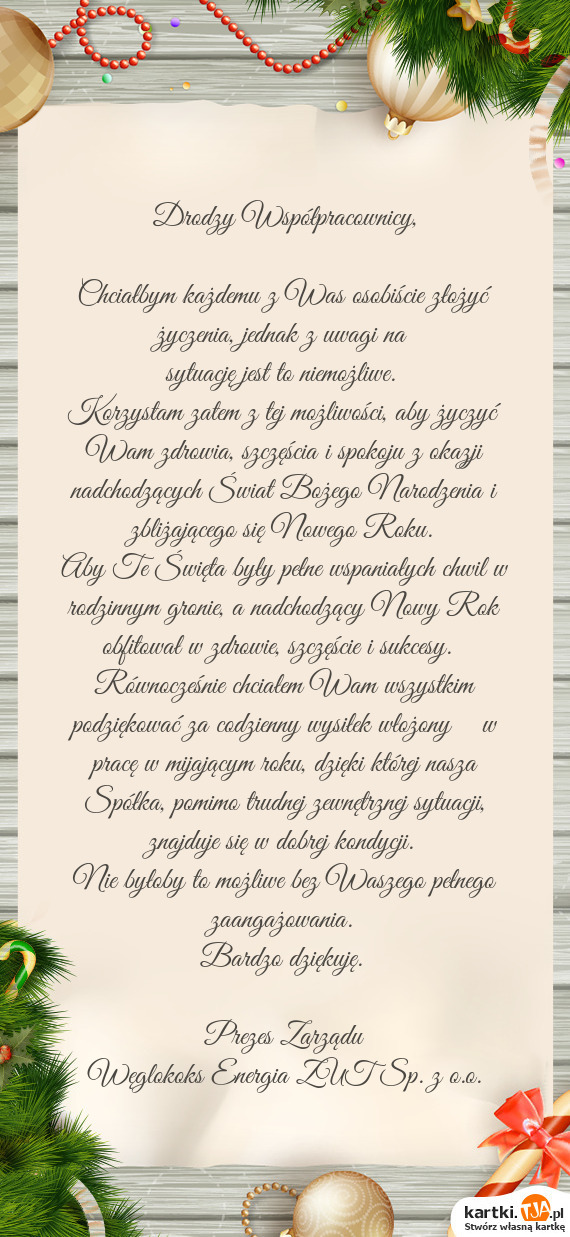 Drodzy Współpracownicy,
Chciałbym każdemu z Was osobiście złożyć
życzenia, jednak z uwagi na
sytuację jest to niemożliwe.
Korzystam zatem z tej możliwości, aby życzyć
Wam zdrowia, szczęścia i spokoju z okazji
nadchodzących Świat Bożego Narodzenia i
zbliżającego się Nowego Roku.
Aby Te Święta były pełne wspaniałych chwil w
rodzinnym gronie, a nadchodzący Nowy Rok
obfitował w zdrowie, szczęście i sukcesy.
Równocześnie chciałem Wam wszystkim
podziękować za codzienny wysiłek włożony w
pracę w mijającym roku, dzięki której nasza
Spółka, pomimo trudnej zewnętrznej sytuacji,
znajduje się w dobrej kondycji.
Nie byłoby to możliwe bez Waszego pełnego
zaangażowania.
Bardzo dziękuję.
Prezes Zarządu
Węglokoks Energia ZUT Sp. z o.o.
kartki.TJA.pl
Stwórz własną kartkę